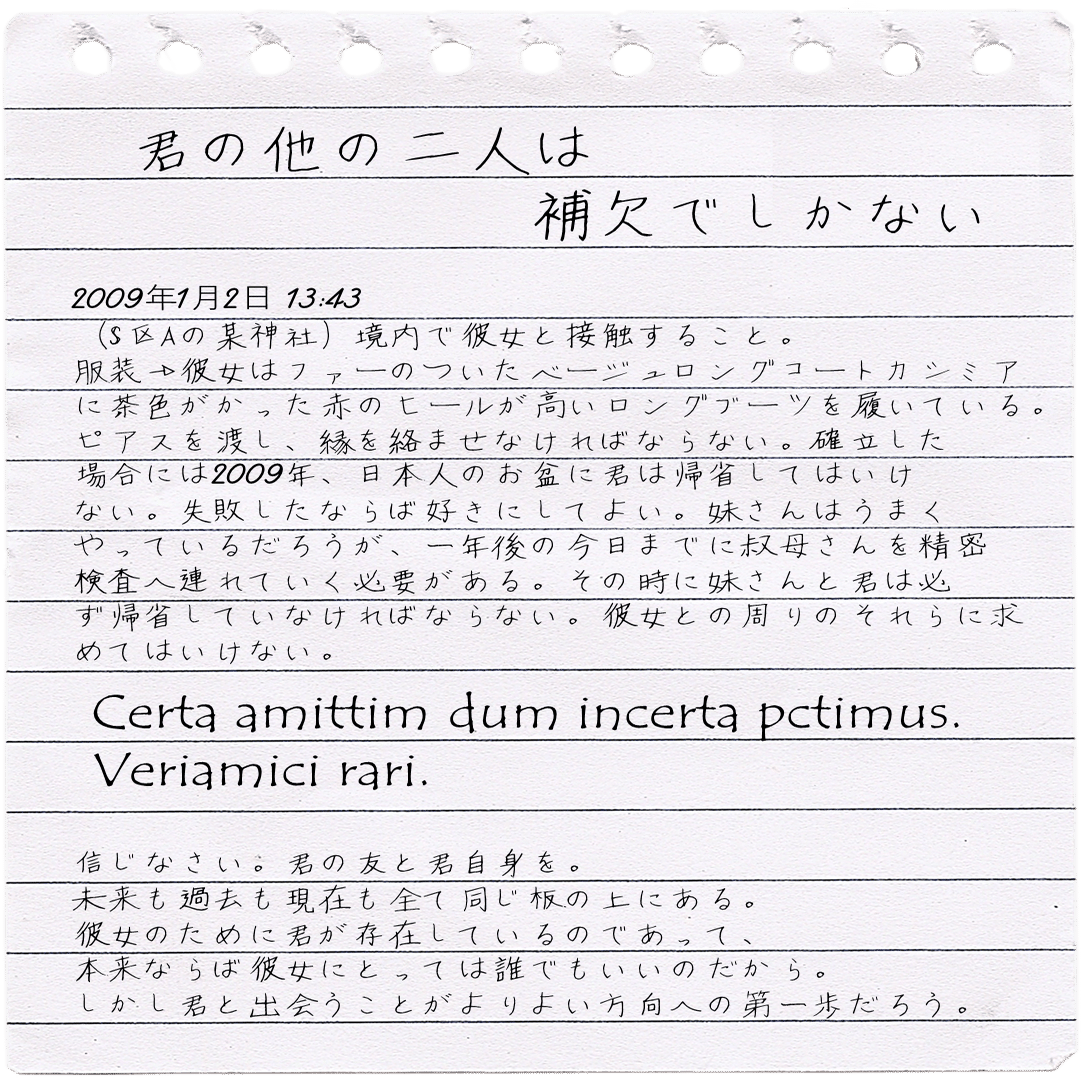 君の他の二人は
補欠でしかない
2009年1月2日 13:43
（S区Aの某神社）境内で彼女と接触すること。
服装→彼女はファーのついたベージュロングコートカシミア
に茶色がかった赤のヒールが高いロングブーツを履いている。
ピアスを渡し、縁を絡ませなければならない。確立した
場合には2009年、日本人のお盆に君は帰省してはいけ
ない。失敗したならば好きにしてよい。妹さんはうまく
やっているだろうが、一年後の今日までに叔母さんを精密
検査へ連れていく必要がある。その時に妹さんと君は必
ず帰省していなければならない。彼女との周りのそれらに求
めてはいけない。
Certa amittim dum incerta pctimus.
Veriamici rari.
信じなさい。君の友と君自身を。
未来も過去も現在も全て同じ板の上にある。
彼女のために君が存在しているのであって、
本来ならば彼女にとっては誰でもいいのだから。
しかし君と出会うことがよりよい方向への第一歩だろう。